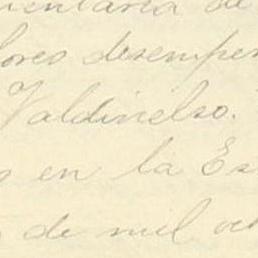 mentaria de
lores desempeñ
Valdivielso.
s en la Es
de mil och